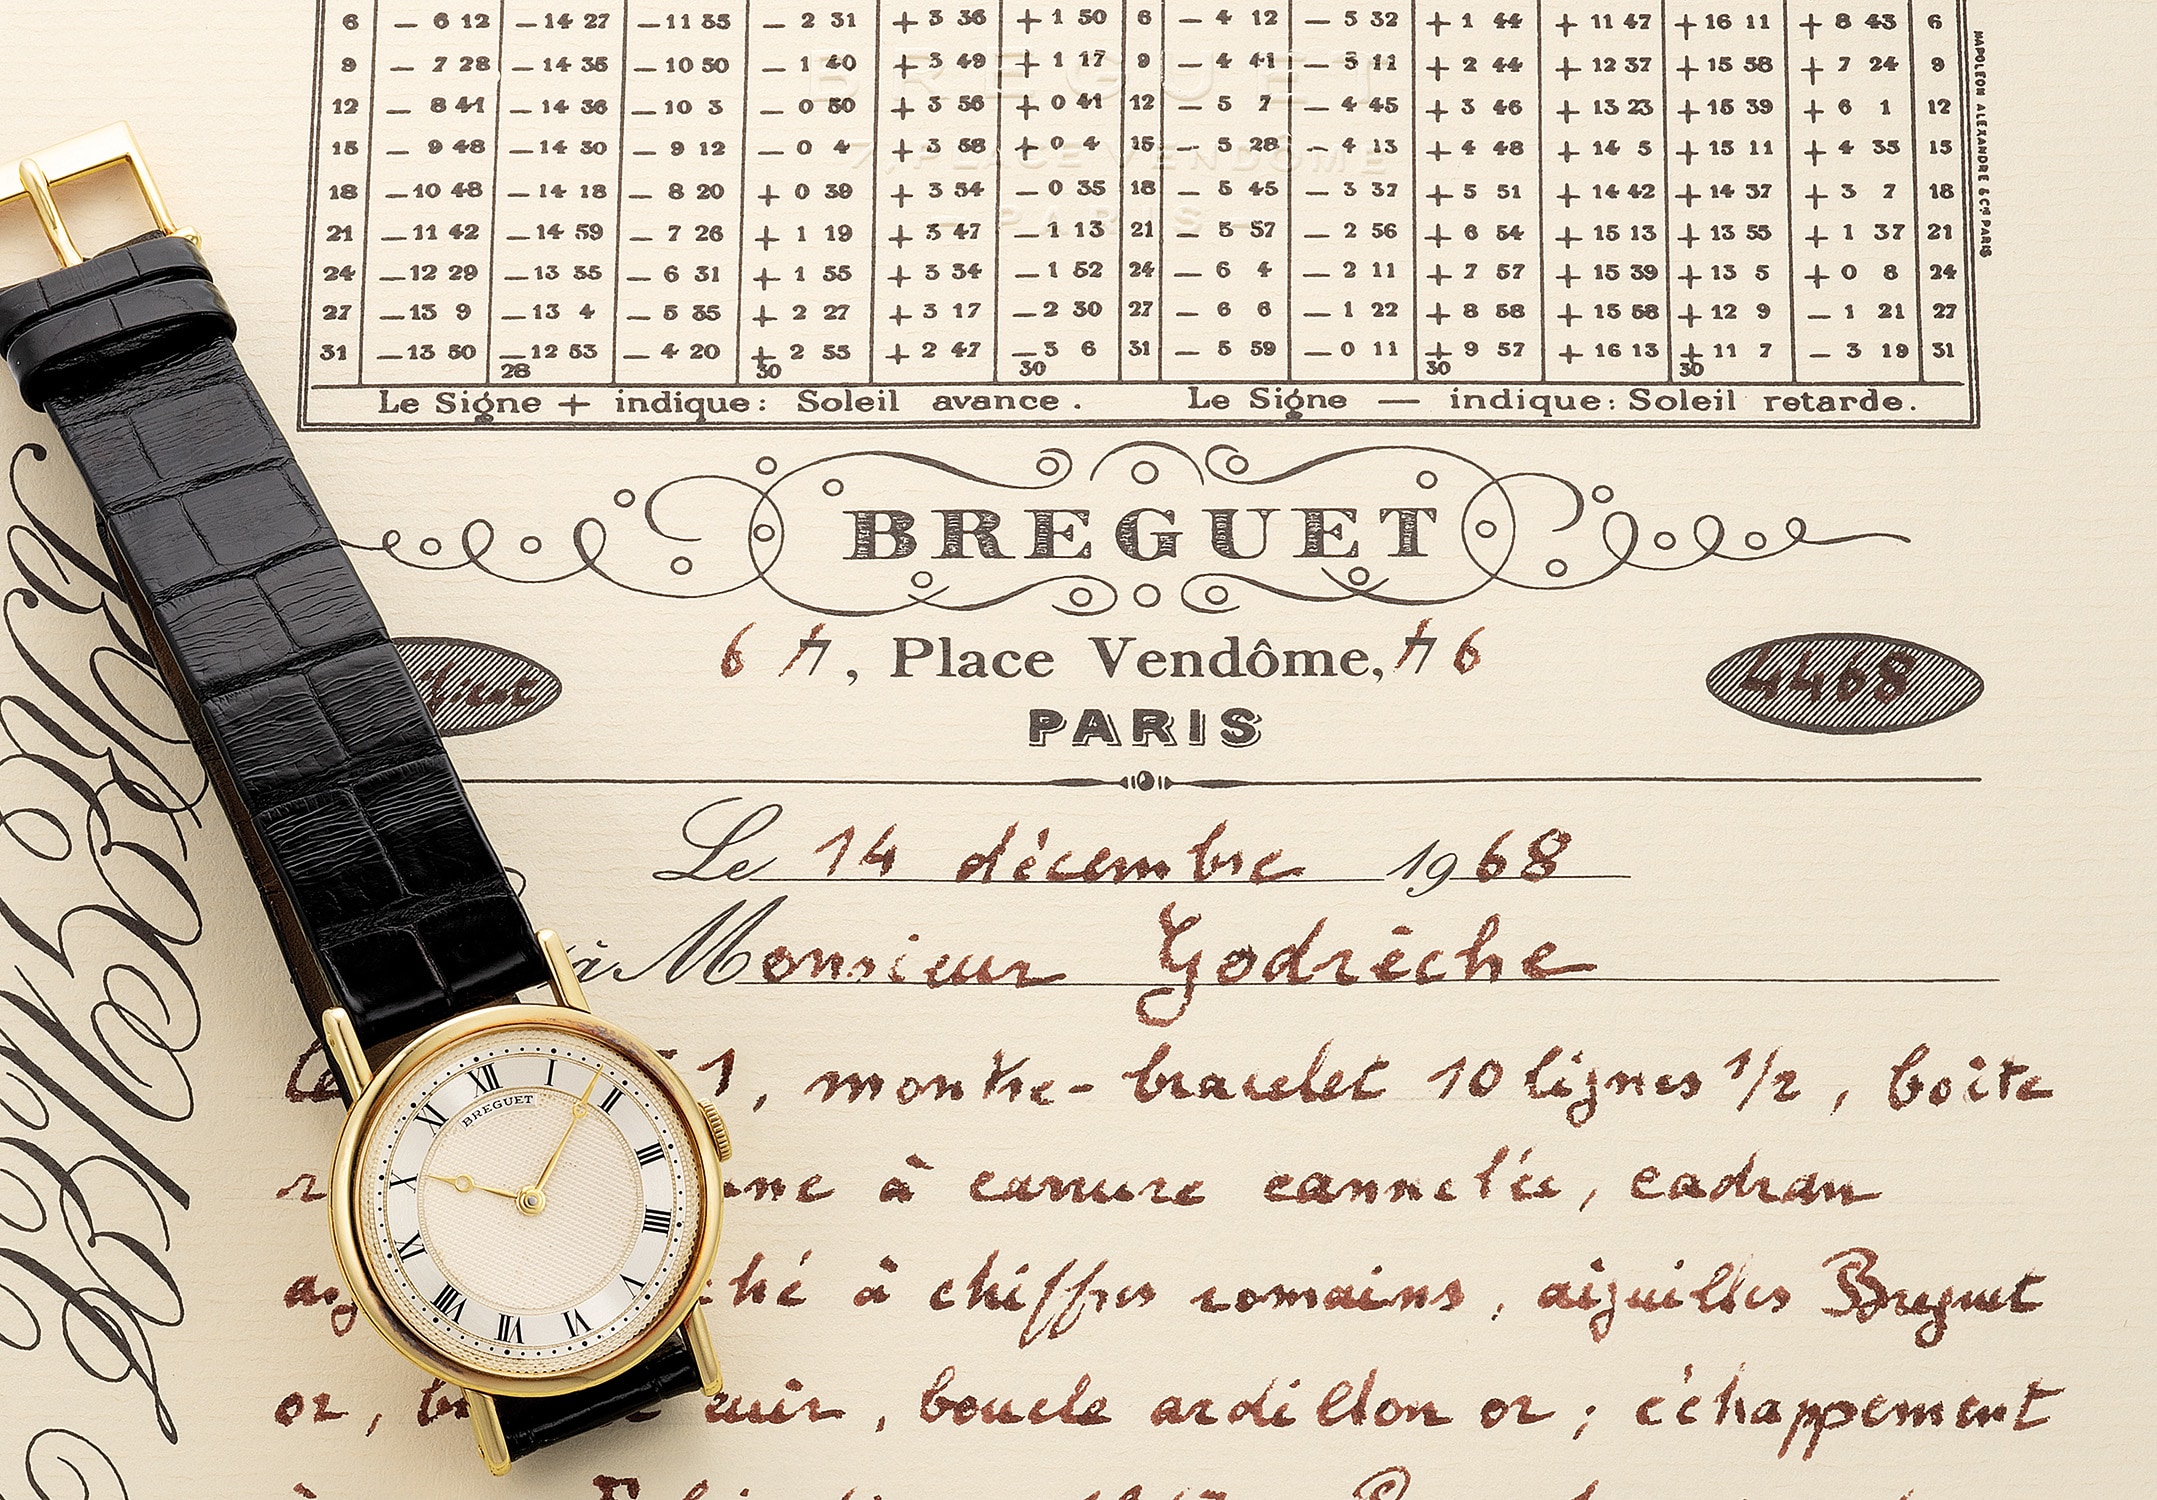 6 — 6 12 — 14 27 — 11 35 — 2 31 + 3 36 + 1 50 6 — 4 12 — 5 32 + 1 44 + 11 47 + 16 11 + 8 43 6
9 — 7 28 — 14 35 — 10 50 — 1 40 + 3 49 + 1 17 9 — 4 41 — 5 11 + 2 44 + 12 37 + 15 58 + 7 24 9
12 — 8 41 — 14 36 — 10 3 — 0 50 + 3 56 + 0 41 12 — 5 7 — 4 45 + 3 46 + 13 23 + 15 39 + 6 1 12
15 — 9 48 — 14 30 — 9 12 — 0 4 + 3 58 + 0 4 15 — 5 28 — 4 13 + 4 48 + 14 5 + 15 11 + 4 35 15
18 — 10 48 — 14 18 — 8 20 + 0 39 + 3 54 — 0 35 18 — 5 45 — 3 37 + 5 51 + 14 42 + 14 37 + 3 7 18
21 — 11 42 — 14 59 — 7 26 + 1 19 + 3 47 — 1 13 21 — 5 57 — 2 56 + 6 54 + 15 13 + 13 55 + 1 37 21
24 — 12 29 — 13 35 — 6 31 + 1 55 + 3 34 — 1 52 24 — 6 4 — 2 11 + 7 57 + 15 39 + 13 5 + 0 8 24
27 — 13 9 — 13 4 — 5 35 + 2 27 + 3 17 — 2 30 27 — 6 6 — 1 22 + 8 58 + 15 58 + 12 9 — 1 21 27
31 — 13 50 — 12 53 — 4 20 + 2 55 + 2 47 — 3 6 31 — 5 59 — 0 11 + 9 57 + 16 13 + 11 7 — 3 19 31
28 30 30 30 30
Le Signe + indique: Soleil avance. Le Signe — indique: Soleil retarde.
NAPOLÉON ALEXANDRE & Cie PARIS
BREGUET
7, PLACE VENDÔME
PARIS
BREGUET
6 7, Place Vendôme, 7 6
PARIS
4468
Le 14 décembre 1968
à Monsieur Godrèche
1, montre-bracelet 10 lignes 1/2, boîte
à carrure cannelée, cadran
à chiffres romains, aiguilles Breguet
or, cuir, boucle ardillon or; échappement
XII I II III IIII V VI VII VIII IX X XI
BREGUET